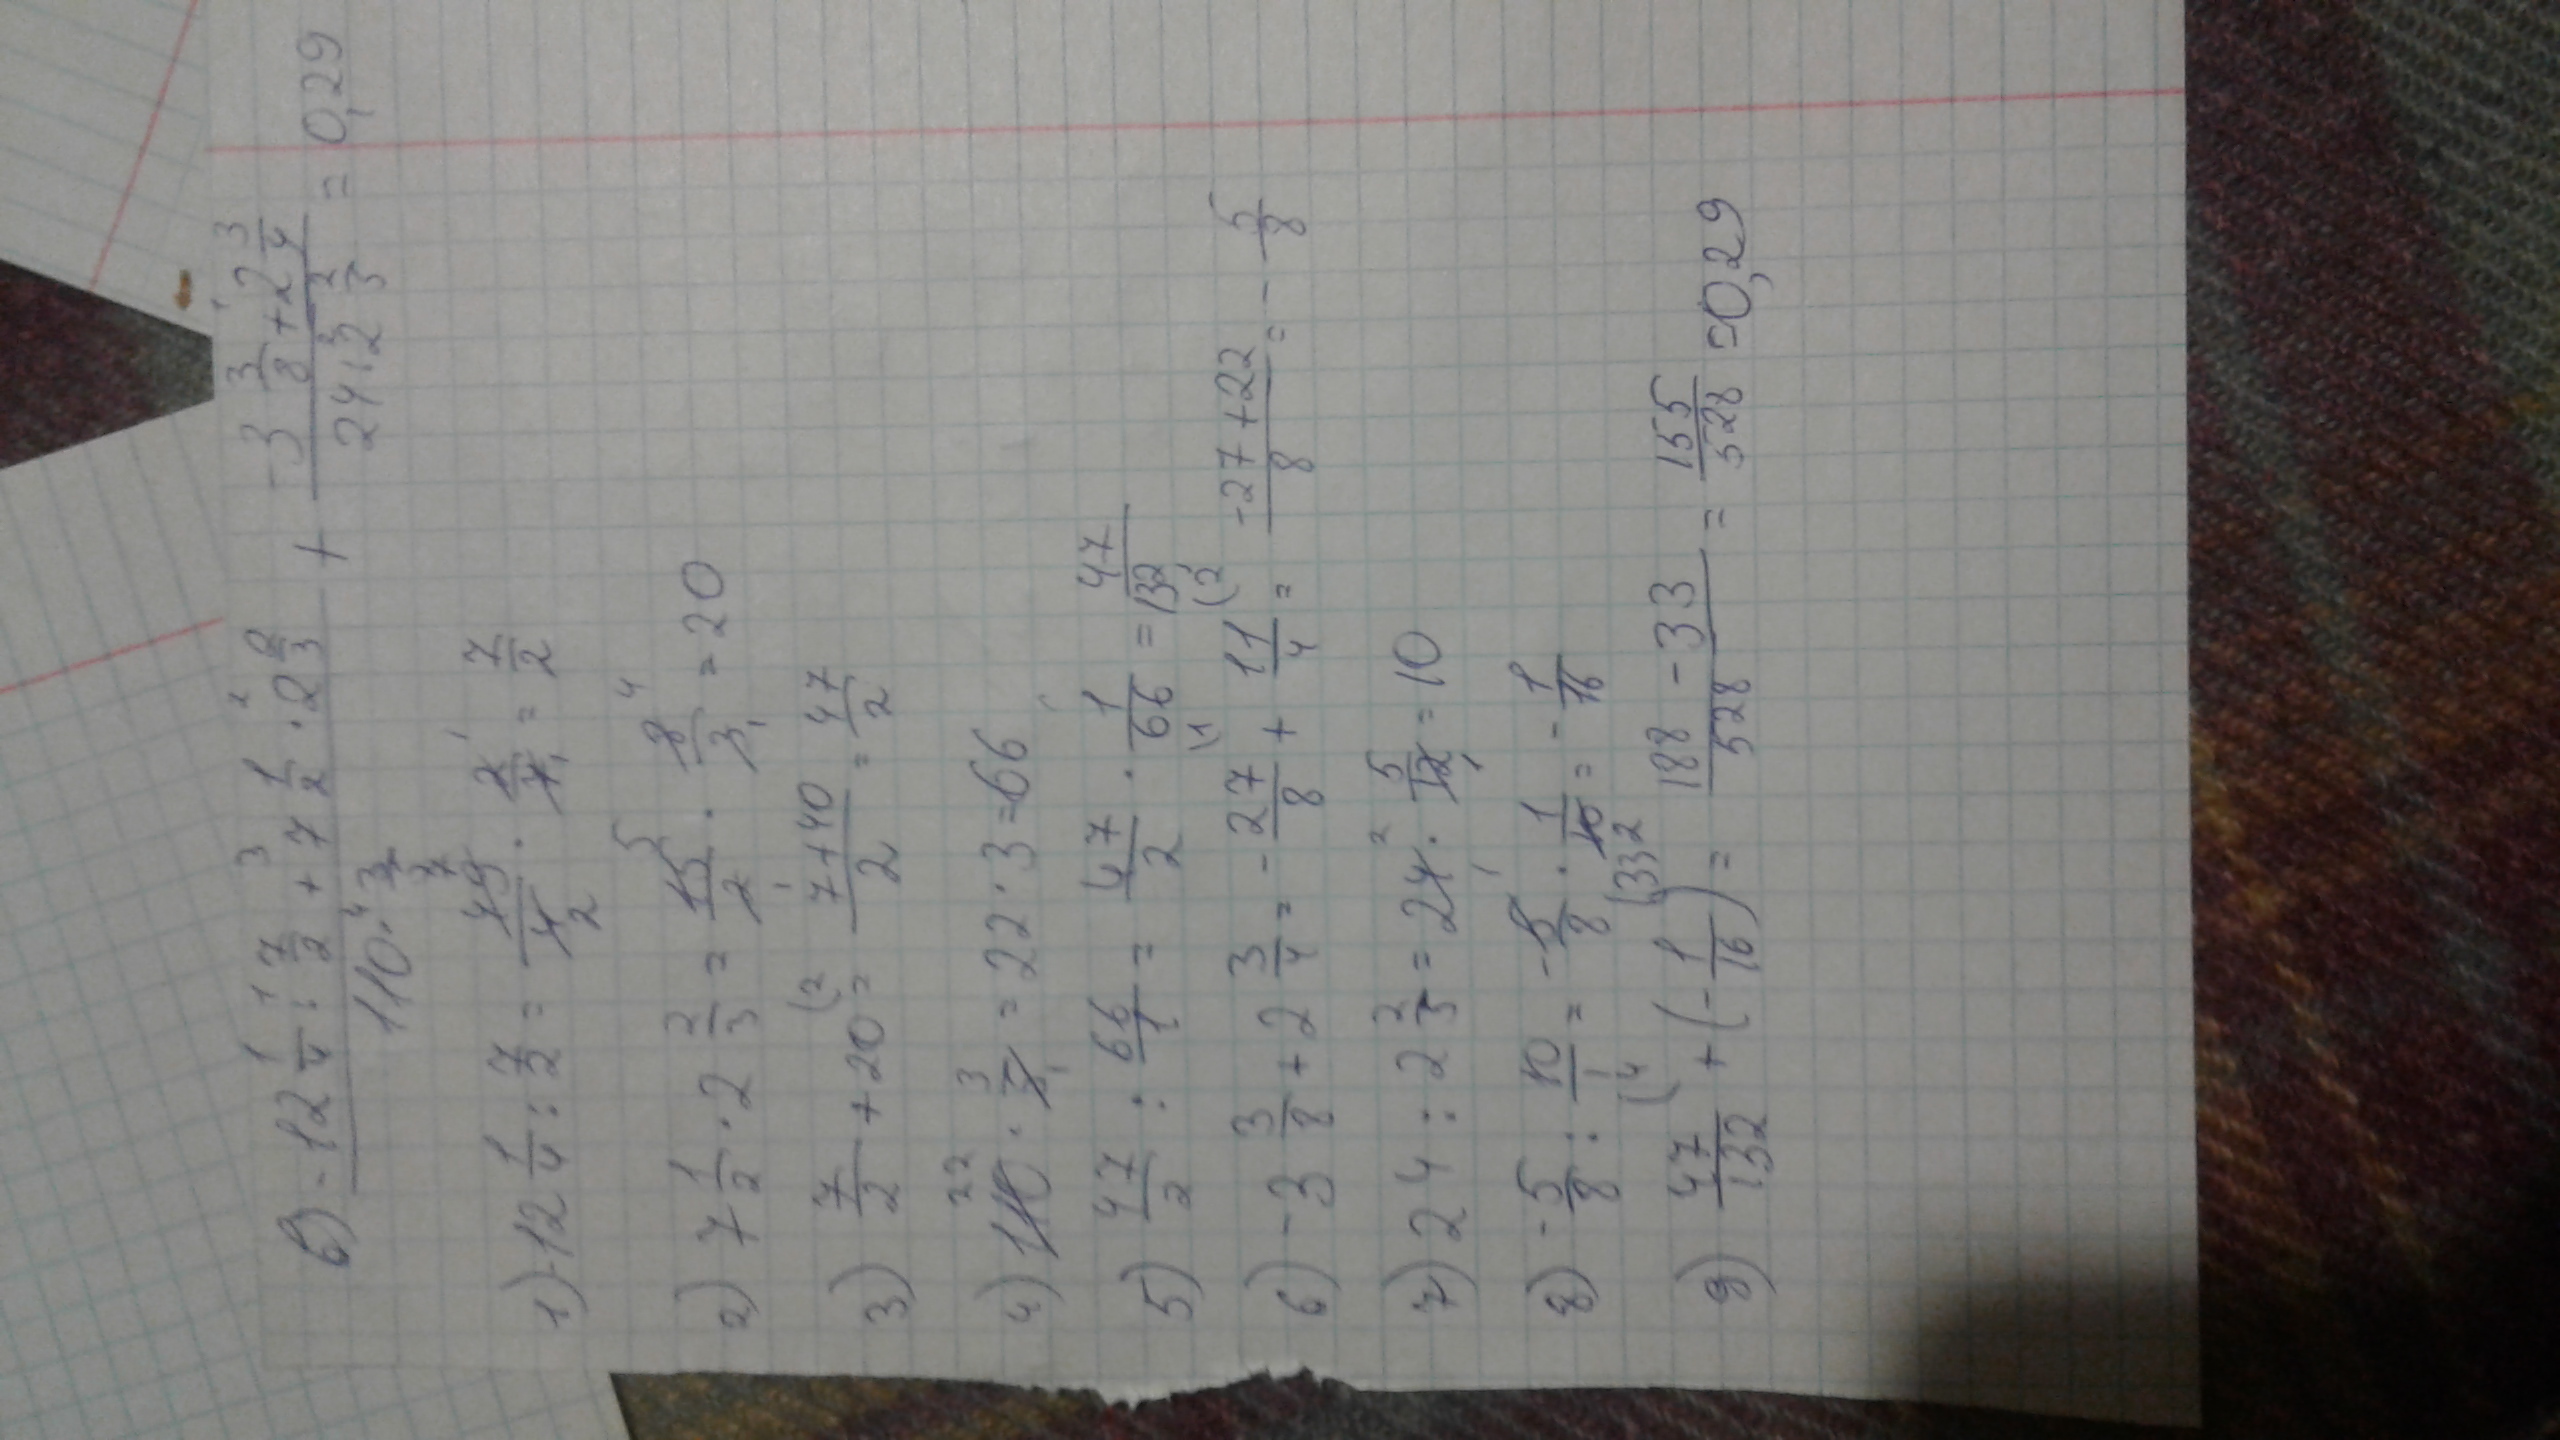 в) -12 1/4 : 7/2 + 7 1/2 · 2 2/3 / 110 · 3/5 + -3 3/8 + 2 3/4 / 24 : 2 2/5 = 0,29
1) -12 1/4 : 7/2 = 49/4 · 2/7 = 7/2
2) 7 1/2 · 2 2/3 = 15/2 · 8/3 = 20
3) 7/2 + 20 = 7+40/2 = 47/2
4) 110 · 3/5 = 22 · 3 = 66
5) 47/2 : 66/1 = 47/2 · 1/66 = 47/132
6) -3 3/8 + 2 3/4 = -27/8 + 11/4 = -27+22/8 = -5/8
7) 24 : 2 2/5 = 24 · 5/12 = 10
8) -5/8 : 10/1 = -5/8 · 1/10 = -1/16
9) 47/132 + (-1/16) = 188-33/528 = 155/528 = 0,29